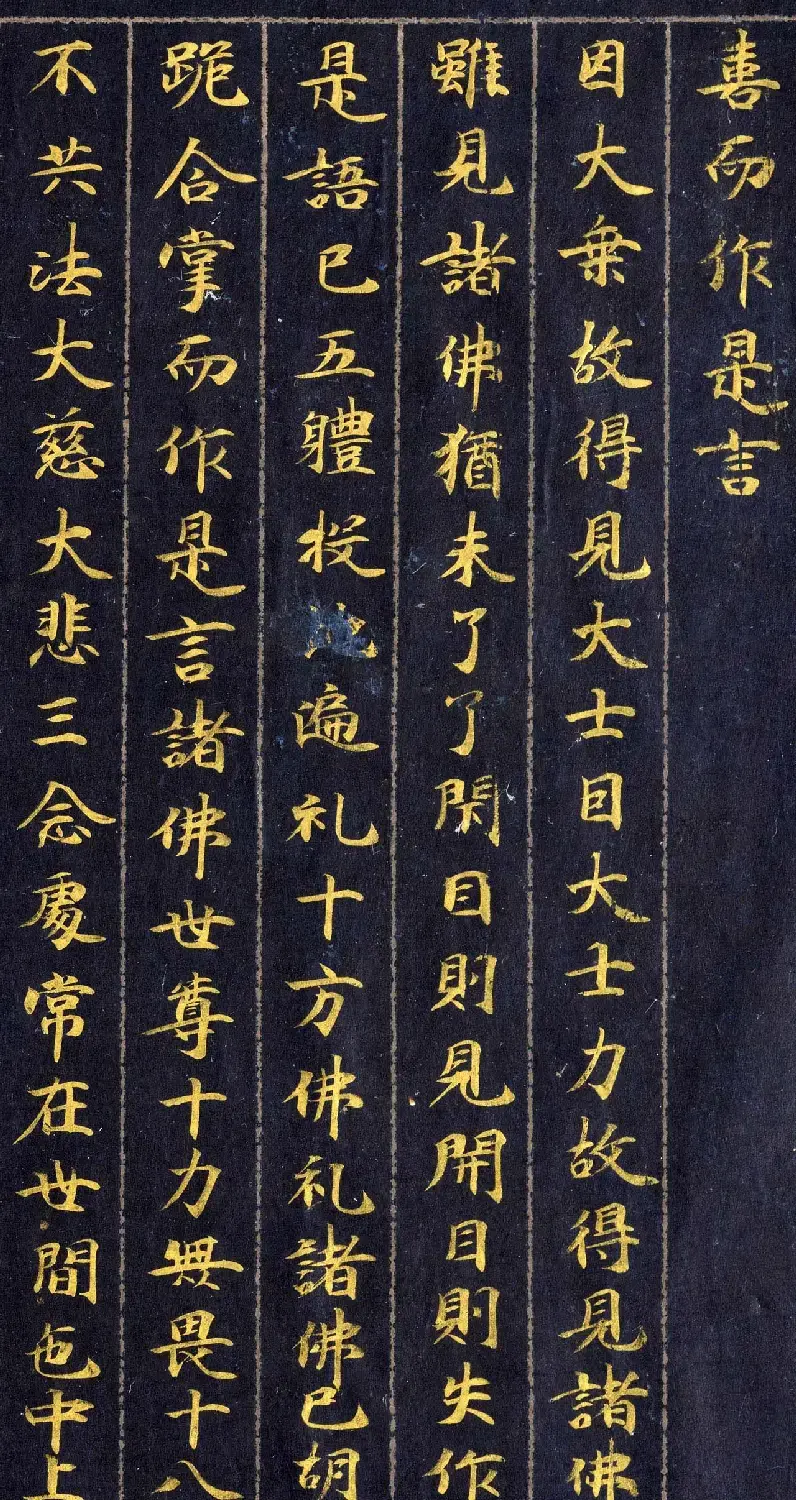 喜而作是言
因大乗故得見大士因大士力故得見諸佛
雖見諸佛猶未了了閇目則見開目則失作
是語已五體投遍礼十方佛礼諸佛已胡
跪合掌而作是言諸佛世尊十力無畏十八
不共法大慈大悲三念處常在世間色中上